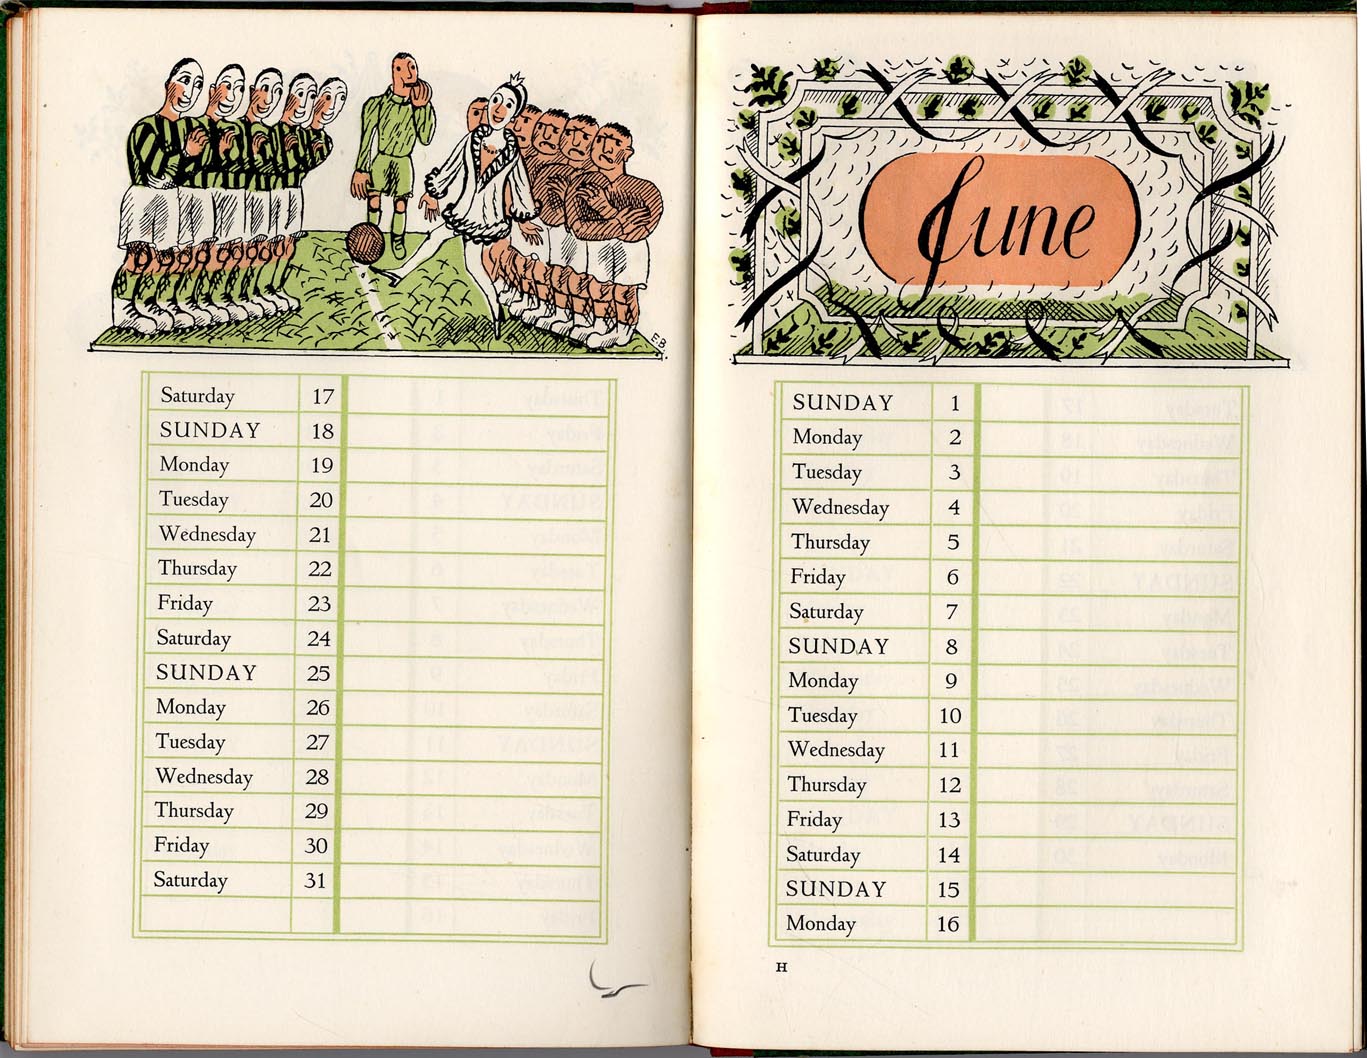 E.B.
Saturday 17
SUNDAY 18
Monday 19
Tuesday 20
Wednesday 21
Thursday 22
Friday 23
Saturday 24
SUNDAY 25
Monday 26
Tuesday 27
Wednesday 28
Thursday 29
Friday 30
Saturday 31
June
SUNDAY 1
Monday 2
Tuesday 3
Wednesday 4
Thursday 5
Friday 6
Saturday 7
SUNDAY 8
Monday 9
Tuesday 10
Wednesday 11
Thursday 12
Friday 13
Saturday 14
SUNDAY 15
Monday 16
H